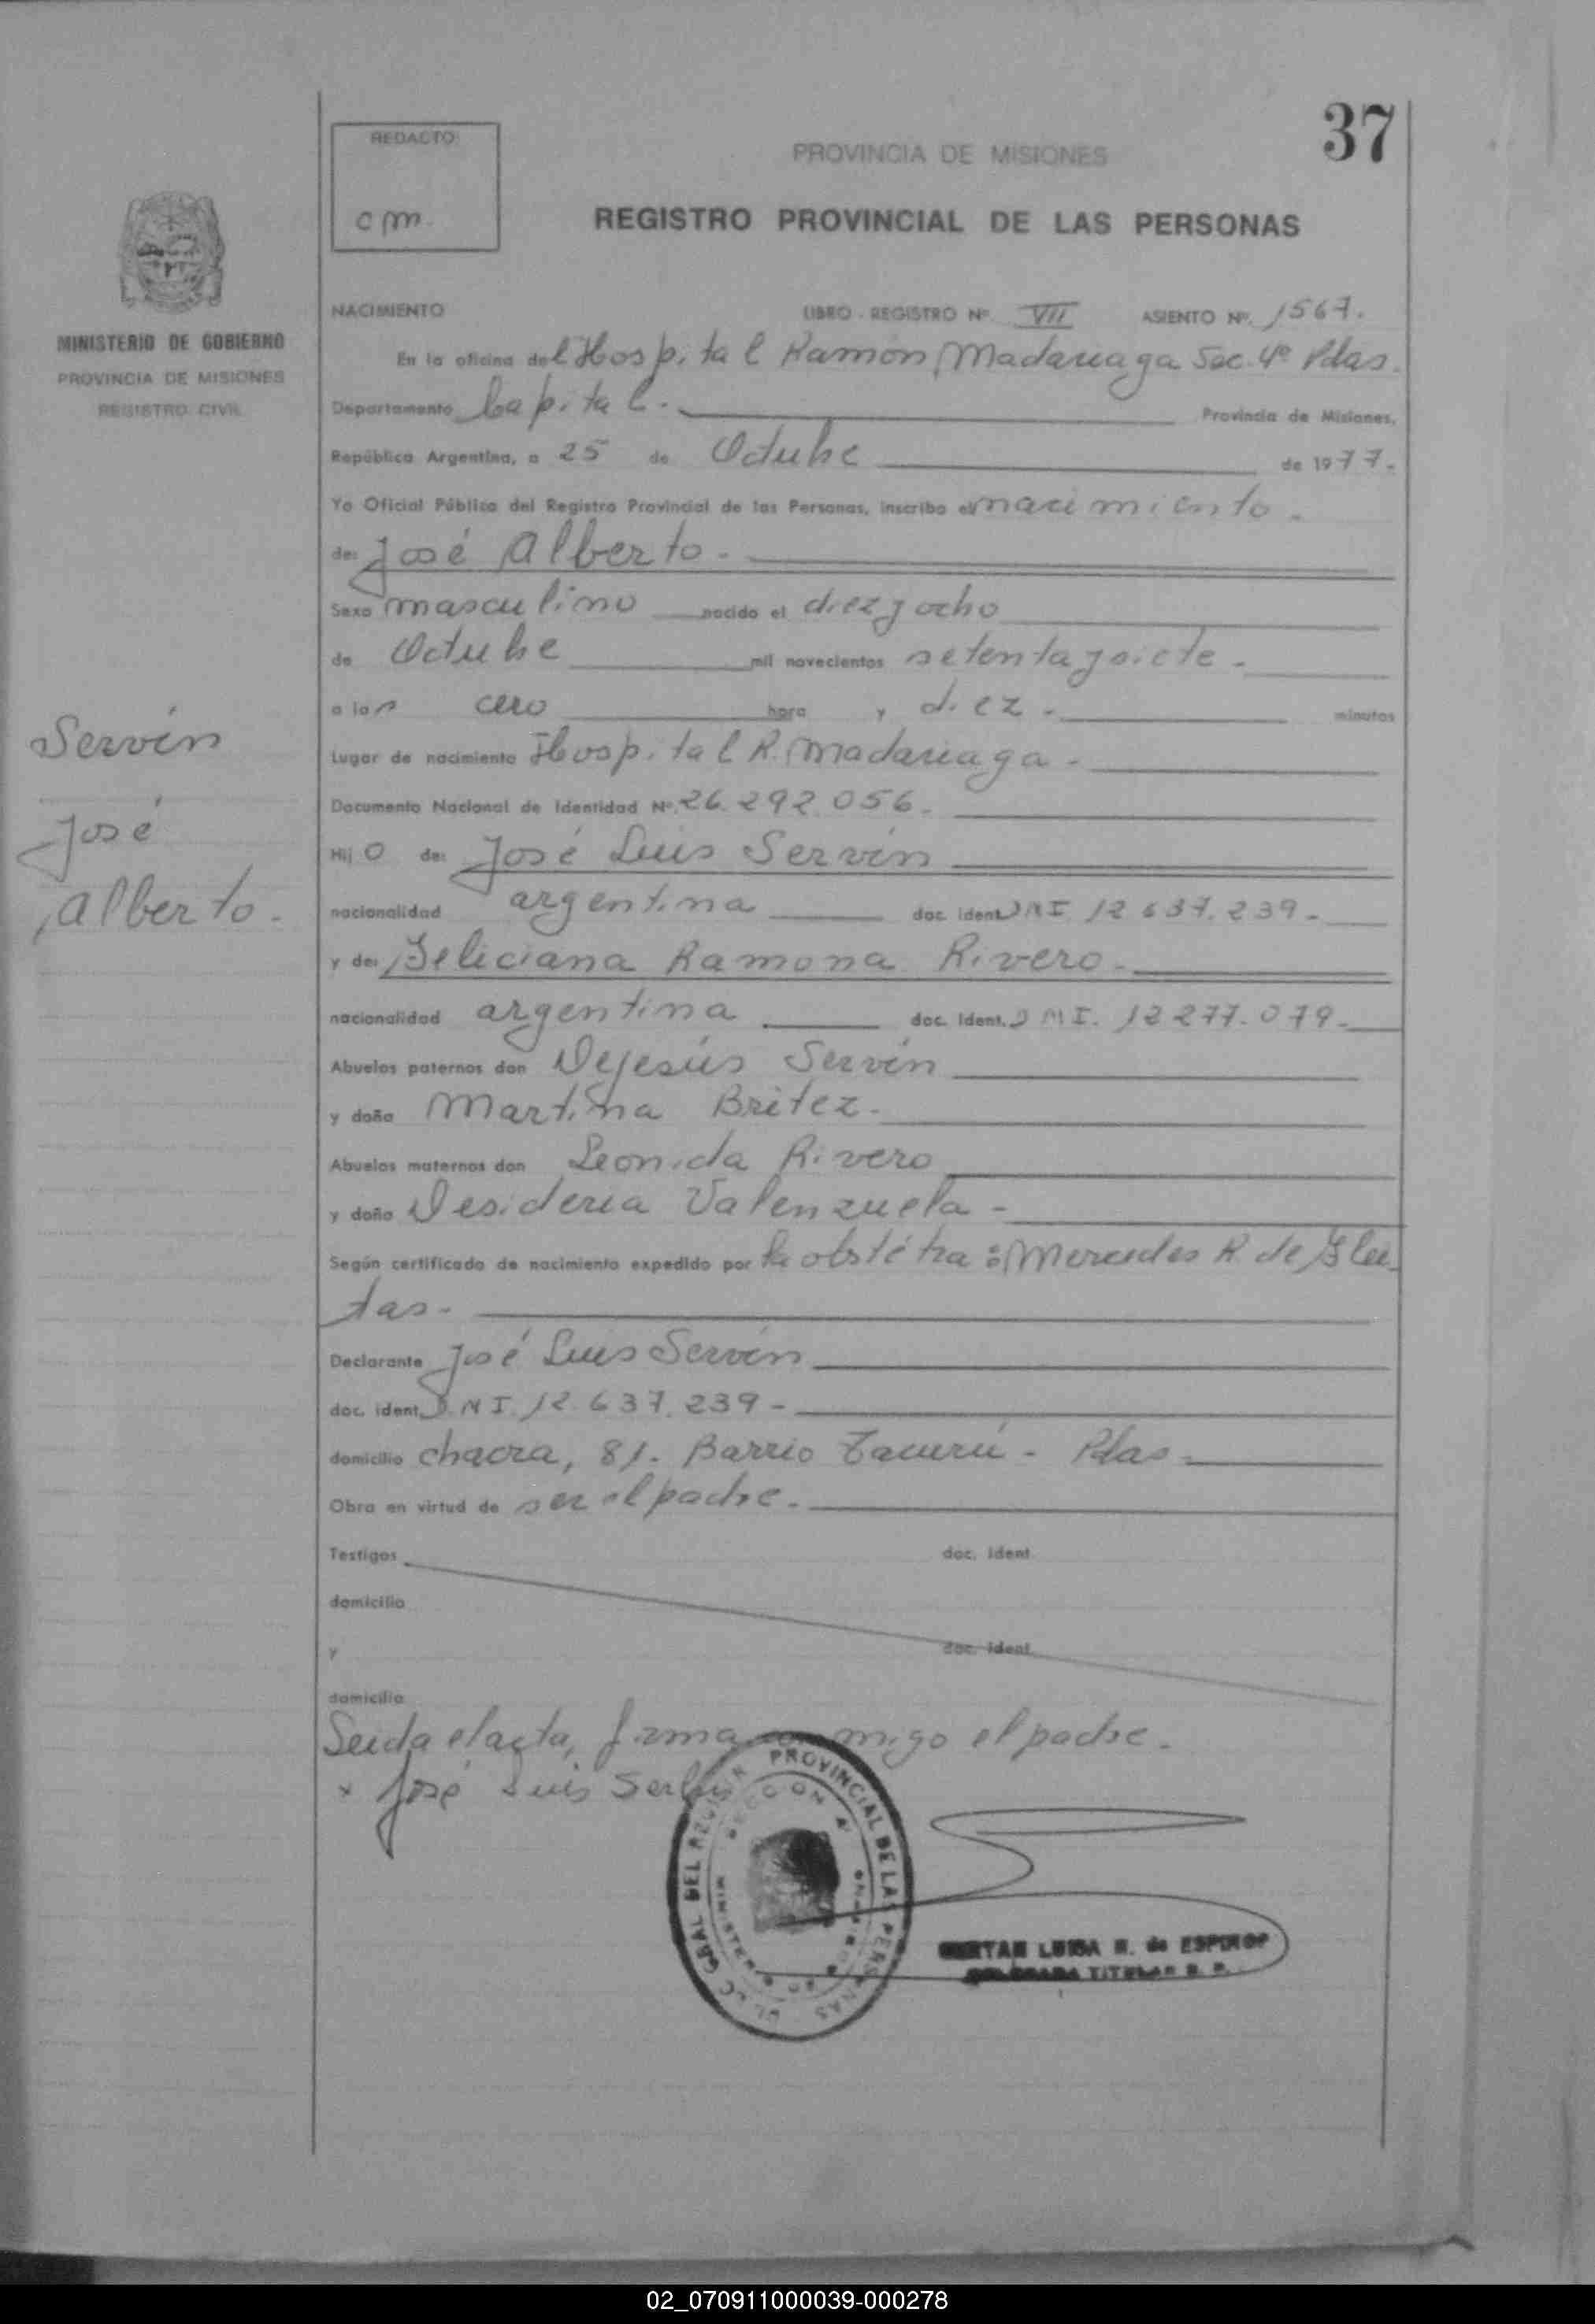 37
REDACTO:
cpm.
PROVINCIA DE MISIONES
REGISTRO PROVINCIAL DE LAS PERSONAS
MINISTERIO DE GOBIERNO
PROVINCIA DE MISIONES
REGISTRO CIVIL
NACIMIENTO LIBRO - REGISTRO Nº VII ASIENTO Nº. 1567.
En la oficina del Hospital Ramón Madariaga Sec. 4º Pdas.
Departamento Capital. Provincia de Misiones,
República Argentina, a 25 de Octubre de 1977.
Yo Oficial Público del Registro Provincial de las Personas, inscribo el nacimiento.
de: José Alberto.
Sexo masculino nacido el diez y ocho
de Octubre mil novecientos setenta y siete.
a las cero hora y diez. minutos
Lugar de nacimiento Hospital R. Madariaga.
Documento Nacional de Identidad Nº. 26.292.056.
Servín
José
Alberto.
Hijo de: José Luis Servín
nacionalidad argentina doc. ident. DNI 12.637.239.
y de: Feliciana Ramona Rivero.
nacionalidad argentina doc. ident. DNI. 12.277.079.
Abuelos paternos don Dejesús Servín
y doña Martina Britez.
Abuelos maternos don Leonida Rivero
y doña Desideria Valenzuela.
Según certificado de nacimiento expedido por la obstétra: Mercedes R. de
tas.
Declarante José Luis Servín
doc. ident. D.N.I. 12.637.239-
domicilio chacra, 81. Barrio Tacurú - Pdas.
Obra en virtud de ser el padre.
Testigos doc. ident.
domicilio
y doc. ident.
domicilio
Leida el acta, firma conmigo el padre.
x José Luis
PROVINCIAL DE LAS PERSONAS
GRAL DEL
LUISA de
TITULAR
02_070911000039-000278